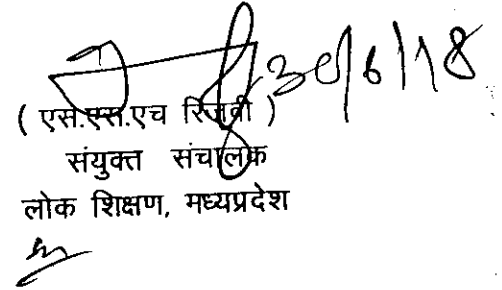 30/6/18
( एस.एस.एच रिज़वी )
संयुक्त संचालक
लोक शिक्षण, मध्यप्रदेश